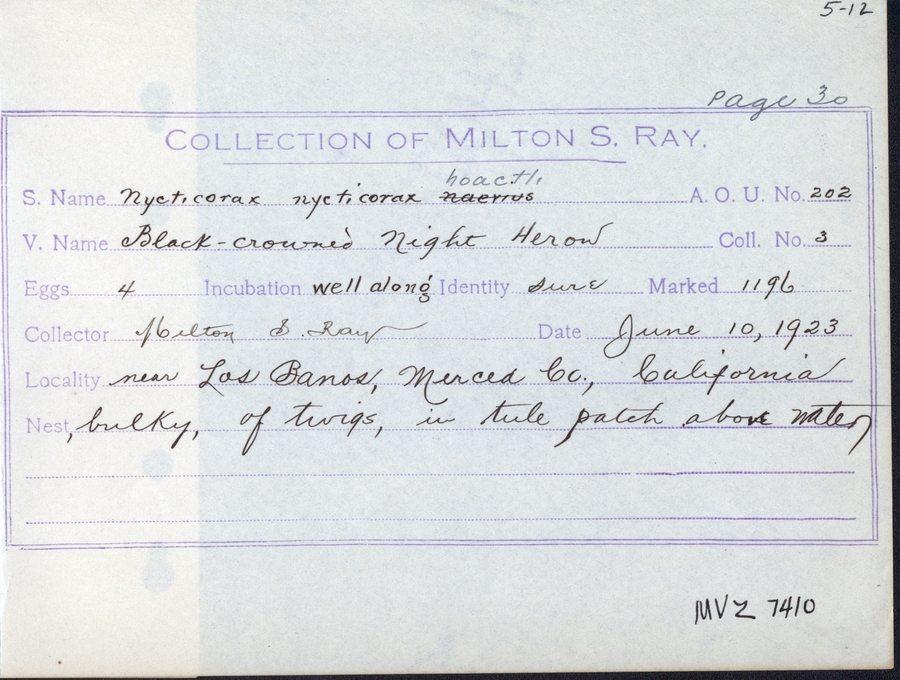 5-12
Page 30
COLLECTION OF MILTON S. RAY.
hoactli
S. Name Nycticorax nycticorax naevius A. O. U. No. 202
V. Name Black-crowned Night Heron Coll. No. 3
Eggs 4 Incubation well along Identity sure Marked 1196
Collector Milton S. Ray Date June 10, 1923
Locality near Los Banos, Merced Co., California
Nest, bulky, of twigs, in tule patch above water
MVZ 7410